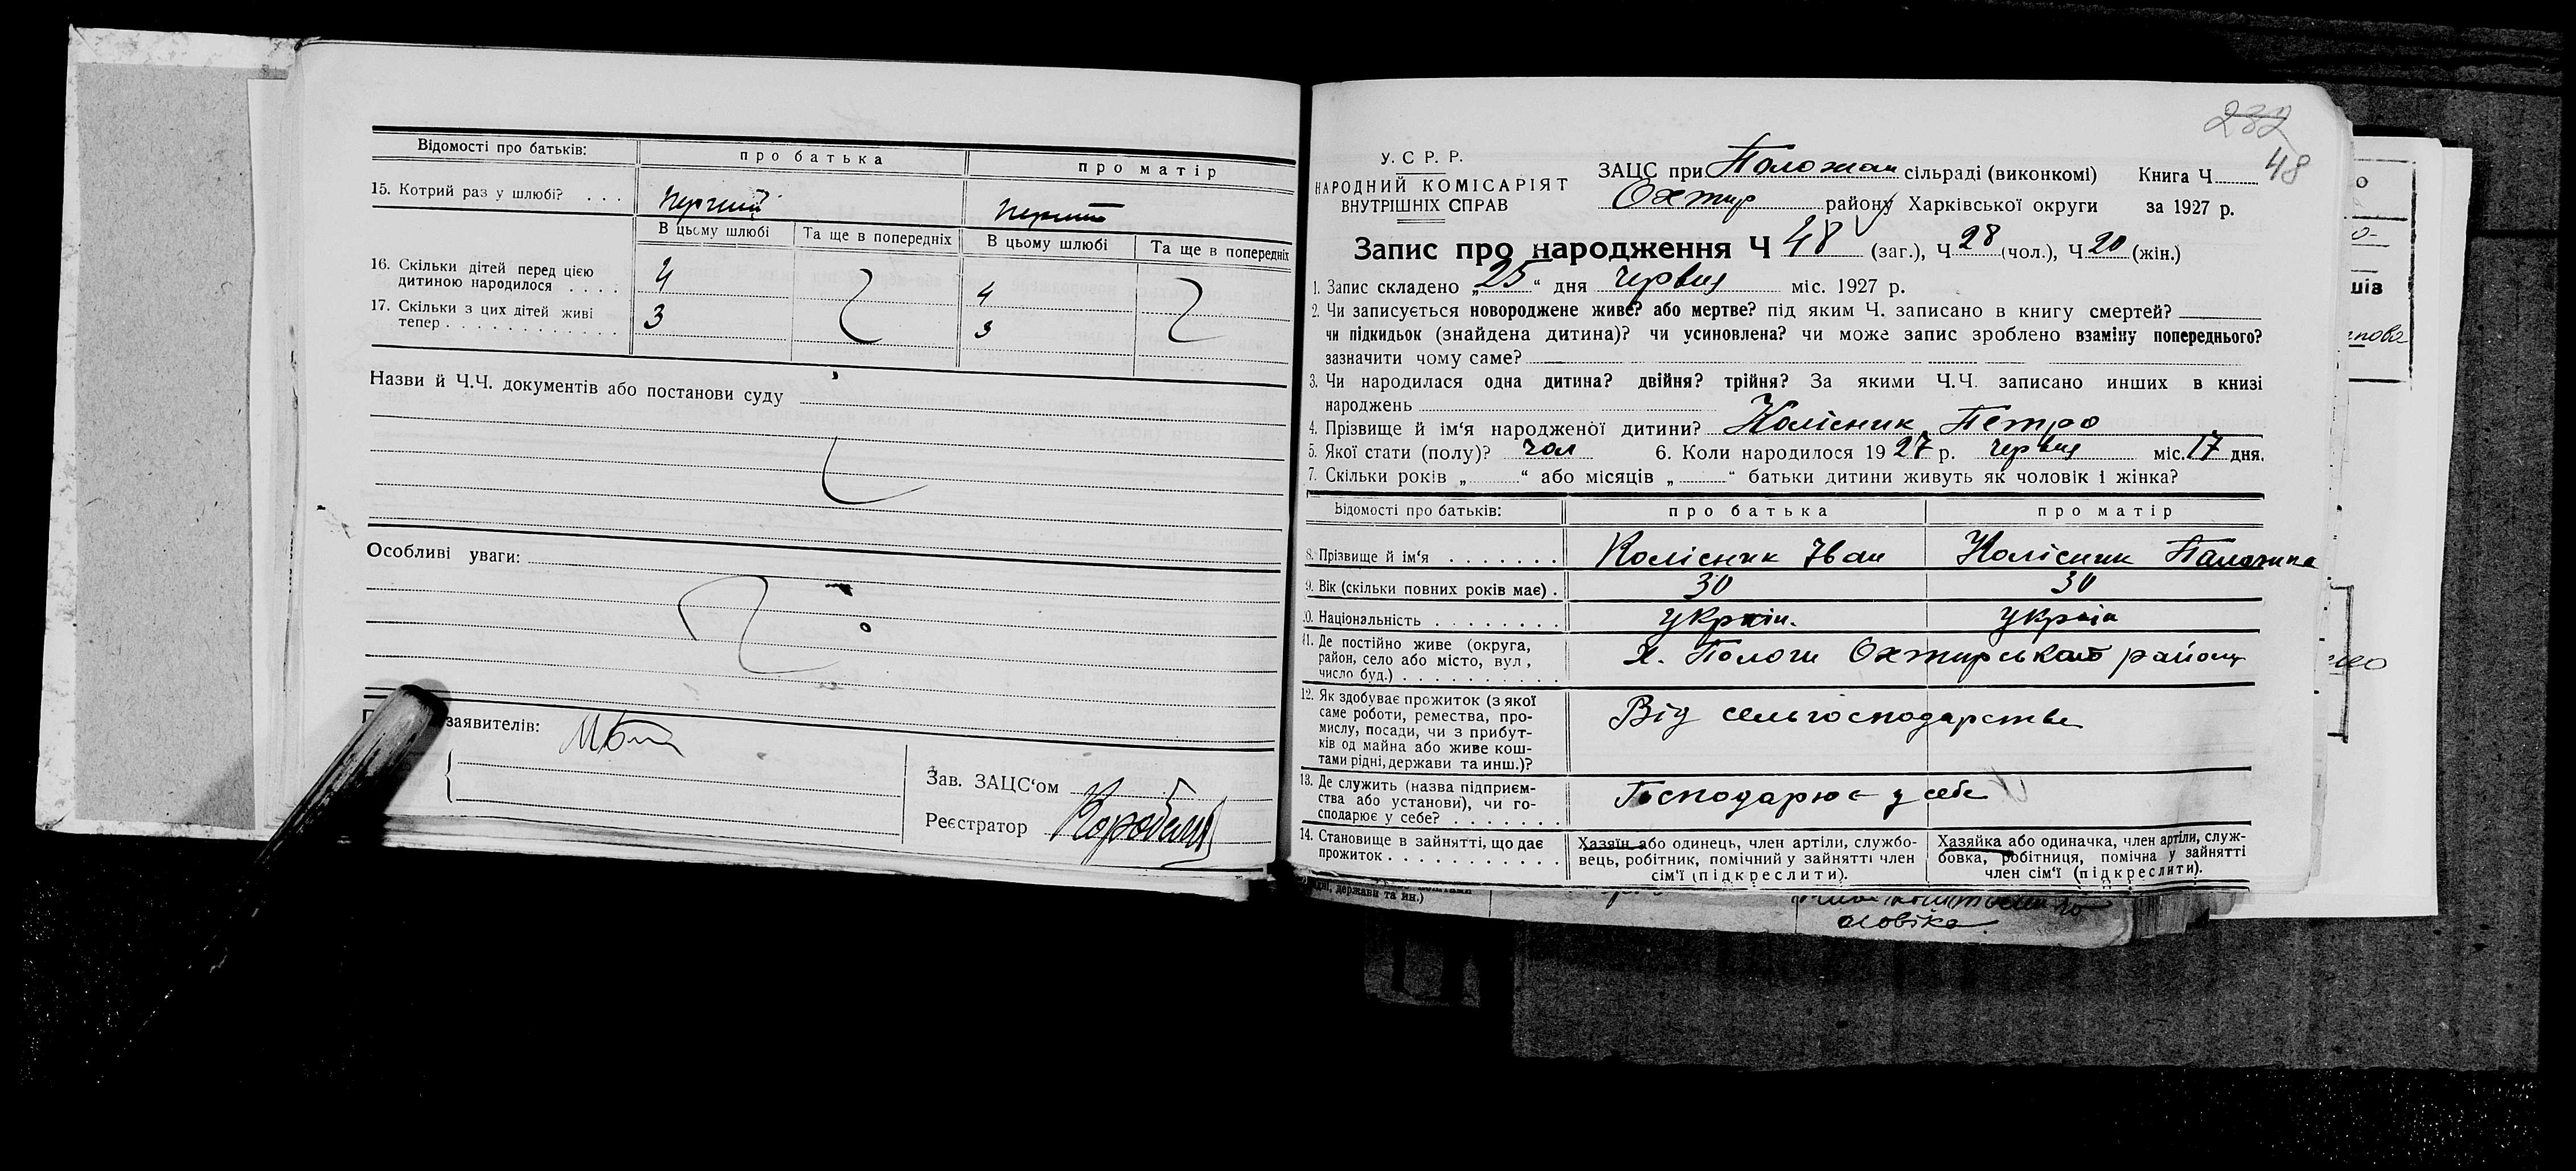 Відомості про батьків: про батька про матір
15. Котрий раз у шлюбі? . . . перший перший
В цьому шлюбі Та ще в попередніх В цьому шлюбі Та ще в попередніх
16. Скільки дітей перед цією
дитиною народилося . . . . 4 4
17. Скільки з цих дітей живі
тепер . . . . . . . . . . . . . 3 3
Назви й Ч.Ч. документів або постанови суду
Особливі уваги:
заявителів:
Зав. ЗАЦС‘ом
Реєстратор
232
48
У. С Р. Р.
НАРОДНИЙ КОМІСАРІЯТ
ВНУТРІШНІХ СПРАВ
ЗАЦС при Положан сільраді (виконкомі) Книга Ч
Охтир району Харківської округи за 1927 р.
Запис про народження Ч 48 (заг.), Ч 28 (чол.), Ч 20 (жін.)
1. Запис складено „25“ дня червня міс. 1927 р.
2. Чи записується новороджене живе? або мертве? під яким Ч. записано в книгу смертей?
чи підкидьок (знайдена дитина)? чи усиновлена? чи може запис зроблено взаміну попереднього?
зазначити чому саме?
3. Чи народилася одна дитина? двійня? трійня? За якими Ч.Ч. записано инших в книзі
народжень
4. Прізвище й ім‘я народженої дитини? Колісник Петро
5. Якої стати (полу)? чол 6. Коли народилося 1927 р. червня міс. 17 дня.
7. Скільки років „ “ або місяців „ “ батьки дитини живуть як чоловік і жінка?
Відомості про батьків: про батька про матір
8. Прізвище й ім‘я . . . . . . . Колісник Іван Колісник
9. Вік (скільки повних років має) . 30 30
10. Національність . . . . . . . . україн. україн
11. Де постійно живе (округа,
район, село або місто, вул,
число буд.) . . . . . . . . . . Х. Пологи Охтирського району
12. Як здобуває прожиток (з якої
саме роботи, ремества, про-
мислу, посади, чи з прибут-
ків од майна або живе кош-
тами рідні, держави та инш.)?
Від сельгосподарства
13. Де служить (назва підприєм-
ства або установи), чи го-
сподарює у себе? . . . . . . . Господарює у себе
14. Становище в зайнятті, що дає
прожиток . . . . . . . . . . .
Хазяїн або одинець, член артіли, службо-
вець, робітник, помічний у зайнятті член
сім‘ї (підкреслити).
Хазяйка або одиначка, член артіли, служ-
бовка, робітниця, помічна у зайнятті
член сім‘ї (підкреслити).
рідні, держави та ин.)